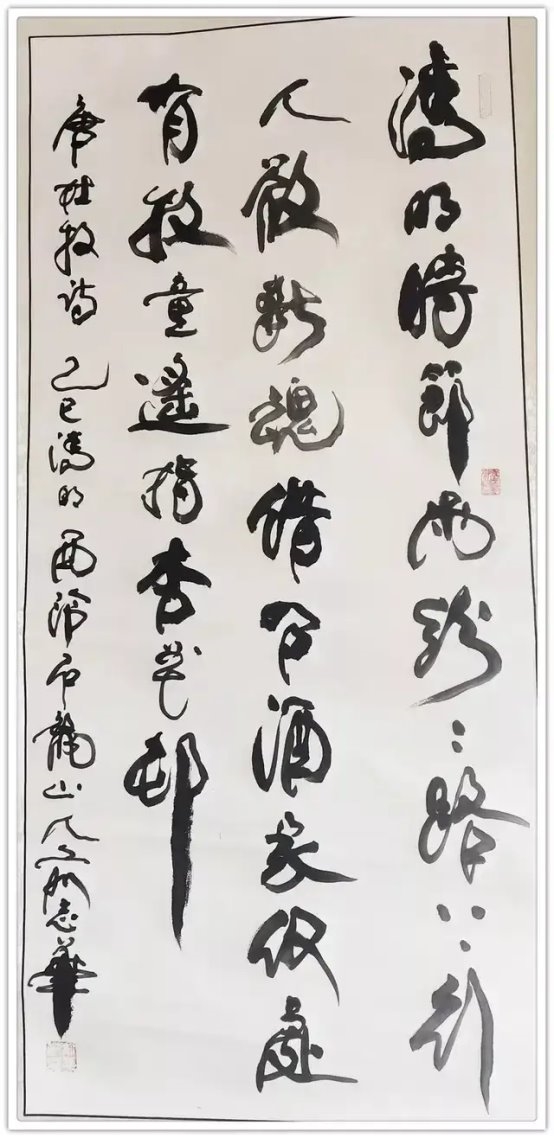 清明時節雨紛〻路上行
人欲斷魂借问酒家何處
有牧童遙指杏花邨
唐杜牧诗 乙巳清明 西泠石龍山 志華